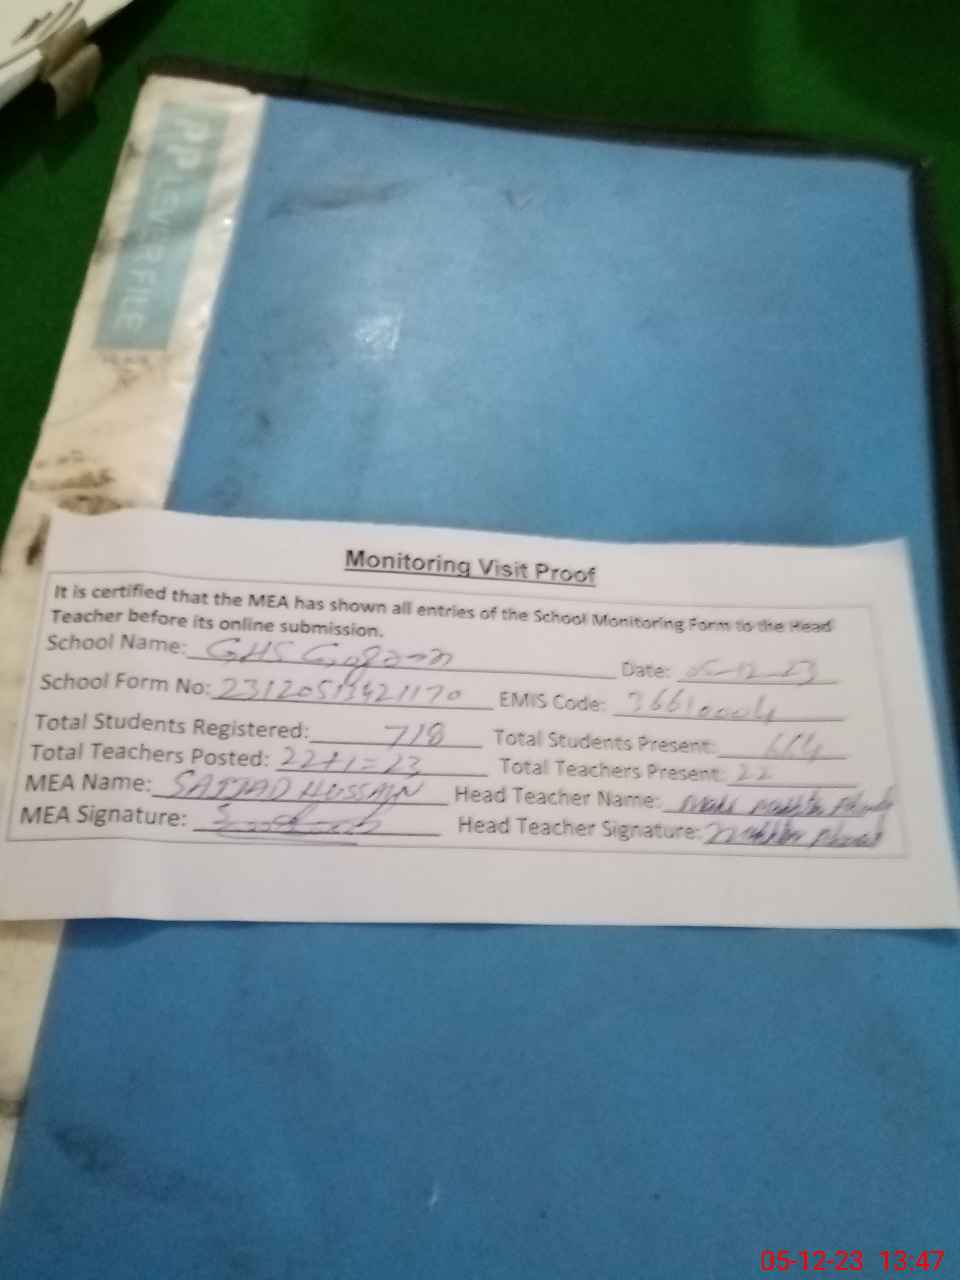 PP LEVER FILE
Monitoring Visit Proof
It is certified that the MEA has shown all entries of the School Monitoring Form to the Head
Teacher before its online submission.
School Name: GHS Date: 05-12-23
School Form No: EMIS Code: 36610004
Total Students Registered: 718 Total Students Present: 614
Total Teachers Posted: 22+1=23 Total Teachers Present: 22
MEA Name: SAJJAD HUSSAIN Head Teacher Name:
MEA Signature: Head Teacher Signature:
05-12-23 13:47